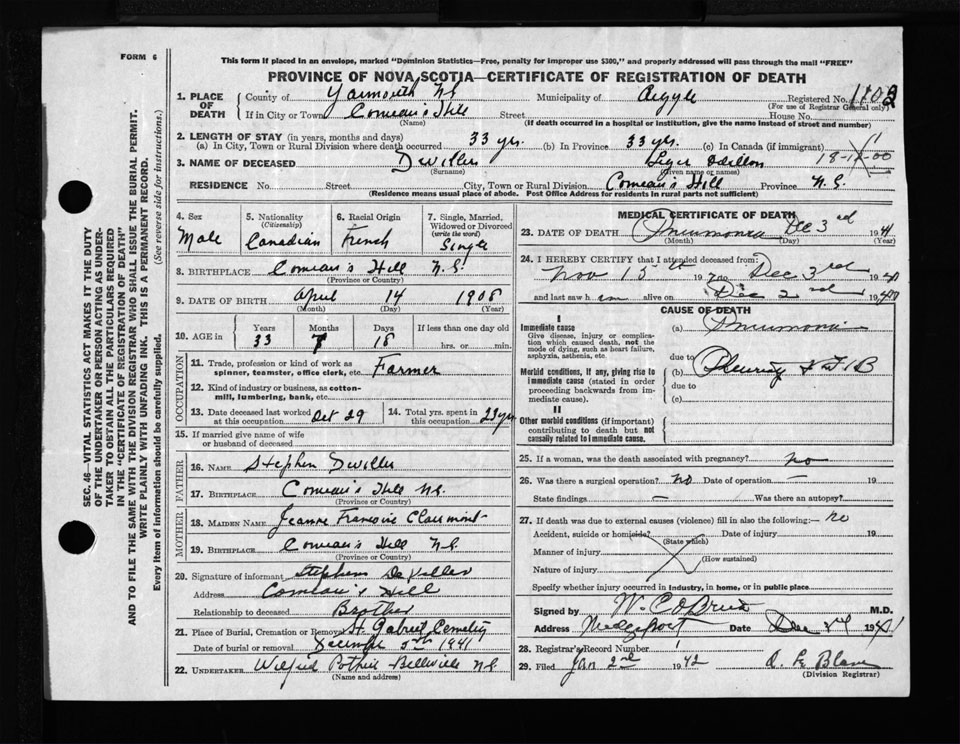 FORM 6
This form if placed in an envelope, marked "Dominion Statistics—Free, penalty for improper use $300," and properly addressed will pass through the mail "FREE"
PROVINCE OF NOVA SCOTIA—CERTIFICATE OF REGISTRATION OF DEATH
1. PLACE OF DEATH County of Yarmouth N.S. Municipality of Argyle Registered No.
(For use of Registrar General only)
If in City or Town Comeau's Hill Street House No.
(Name) (If death occurred in a hospital or institution, give the name instead of street and number)
2. LENGTH OF STAY (in years, months and days)
(a) In City, Town or Rural Division where death occurred 33 yrs. (b) In Province 33 yrs. (c) In Canada (if immigrant)
18-12-00
3. NAME OF DECEASED Deviller
(Surname) (Given name or names)
RESIDENCE No. Street City, Town or Rural Division Comeau's Hill Province N.S.
(Residence means usual place of abode. Post Office Address for residents in rural parts not sufficient)
4. Sex Male
5. Nationality (Citizenship) Canadian
6. Racial Origin French
7. Single, Married, Widowed or Divorced (write the word) Single
8. BIRTHPLACE Comeau's Hill N.S.
(Province or Country)
9. DATE OF BIRTH April 14 1908
(Month) (Day) (Year)
10. AGE in Years 33 Months 7 Days 18 If less than one day old hrs. or min.
OCCUPATION
11. Trade, profession or kind of work as spinner, teamster, office clerk, etc. Farmer
12. Kind of industry or business, as cotton-mill, lumbering, bank, etc.
13. Date deceased last worked at this occupation Oct 29
14. Total yrs. spent in this occupation 23 yrs
15. If married give name of wife or husband of deceased
FATHER
16. NAME Stephen Deviller
17. BIRTHPLACE Comeau's Hill N.S.
(Province or Country)
MOTHER
18. MAIDEN NAME Jeanne Francoise Clairmont
19. BIRTHPLACE Comeau's Hill N.S.
(Province or Country)
20. Signature of informant Stephen DeViller
Address Comeau's Hill
Relationship to deceased Brother
21. Place of Burial, Cremation or Removal Cemetery
Date of burial or removal December 5th 1941
22. UNDERTAKER Wilfred Pothier Belleville N.S.
(Name and address)
MEDICAL CERTIFICATE OF DEATH
23. DATE OF DEATH Pneumonia Dec 3rd 1941
(Month) (Day) (Year)
24. I HEREBY CERTIFY that I attended deceased from:
Nov 15th 19 to Dec 3rd 19
and last saw h im alive on Dec 2nd 19
CAUSE OF DEATH
I
Immediate cause
Give disease, injury or complication which caused death, not the mode of dying, such as heart failure, asphyxia, asthenia, etc.
(a) Pneumonia
due to
Morbid conditions, if any, giving rise to immediate cause (stated in order proceeding backwards from immediate cause).
(b) Pleurisy & T B
due to
(c)
II
Other morbid conditions (if important) contributing to death but not causally related to immediate cause.
25. If a woman, was the death associated with pregnancy? no
26. Was there a surgical operation? no Date of operation — 19
State findings — Was there an autopsy?
27. If death was due to external causes (violence) fill in also the following:— no
Accident, suicide or homicide? Date of injury 19
(State which)
Manner of injury
(How sustained)
Nature of injury
Specify whether injury occurred in industry, in home, or in public place
Signed by M.D.
Address Date Dec 19
28. Registrar's Record Number 1
29. Filed Jan 2nd 1942
(Division Registrar)
SEC. 46—VITAL STATISTICS ACT MAKES IT THE DUTY
OF THE UNDERTAKER OR PERSON ACTING AS UNDER-
TAKER TO OBTAIN ALL THE PARTICULARS REQUIRED
IN THE "CERTIFICATE OF REGISTRATION OF DEATH"
AND TO FILE THE SAME WITH THE DIVISION REGISTRAR WHO SHALL ISSUE THE BURIAL PERMIT.
WRITE PLAINLY WITH UNFADING INK. THIS IS A PERMANENT RECORD.
Every item of information should be carefully supplied. (See reverse side for instructions.)